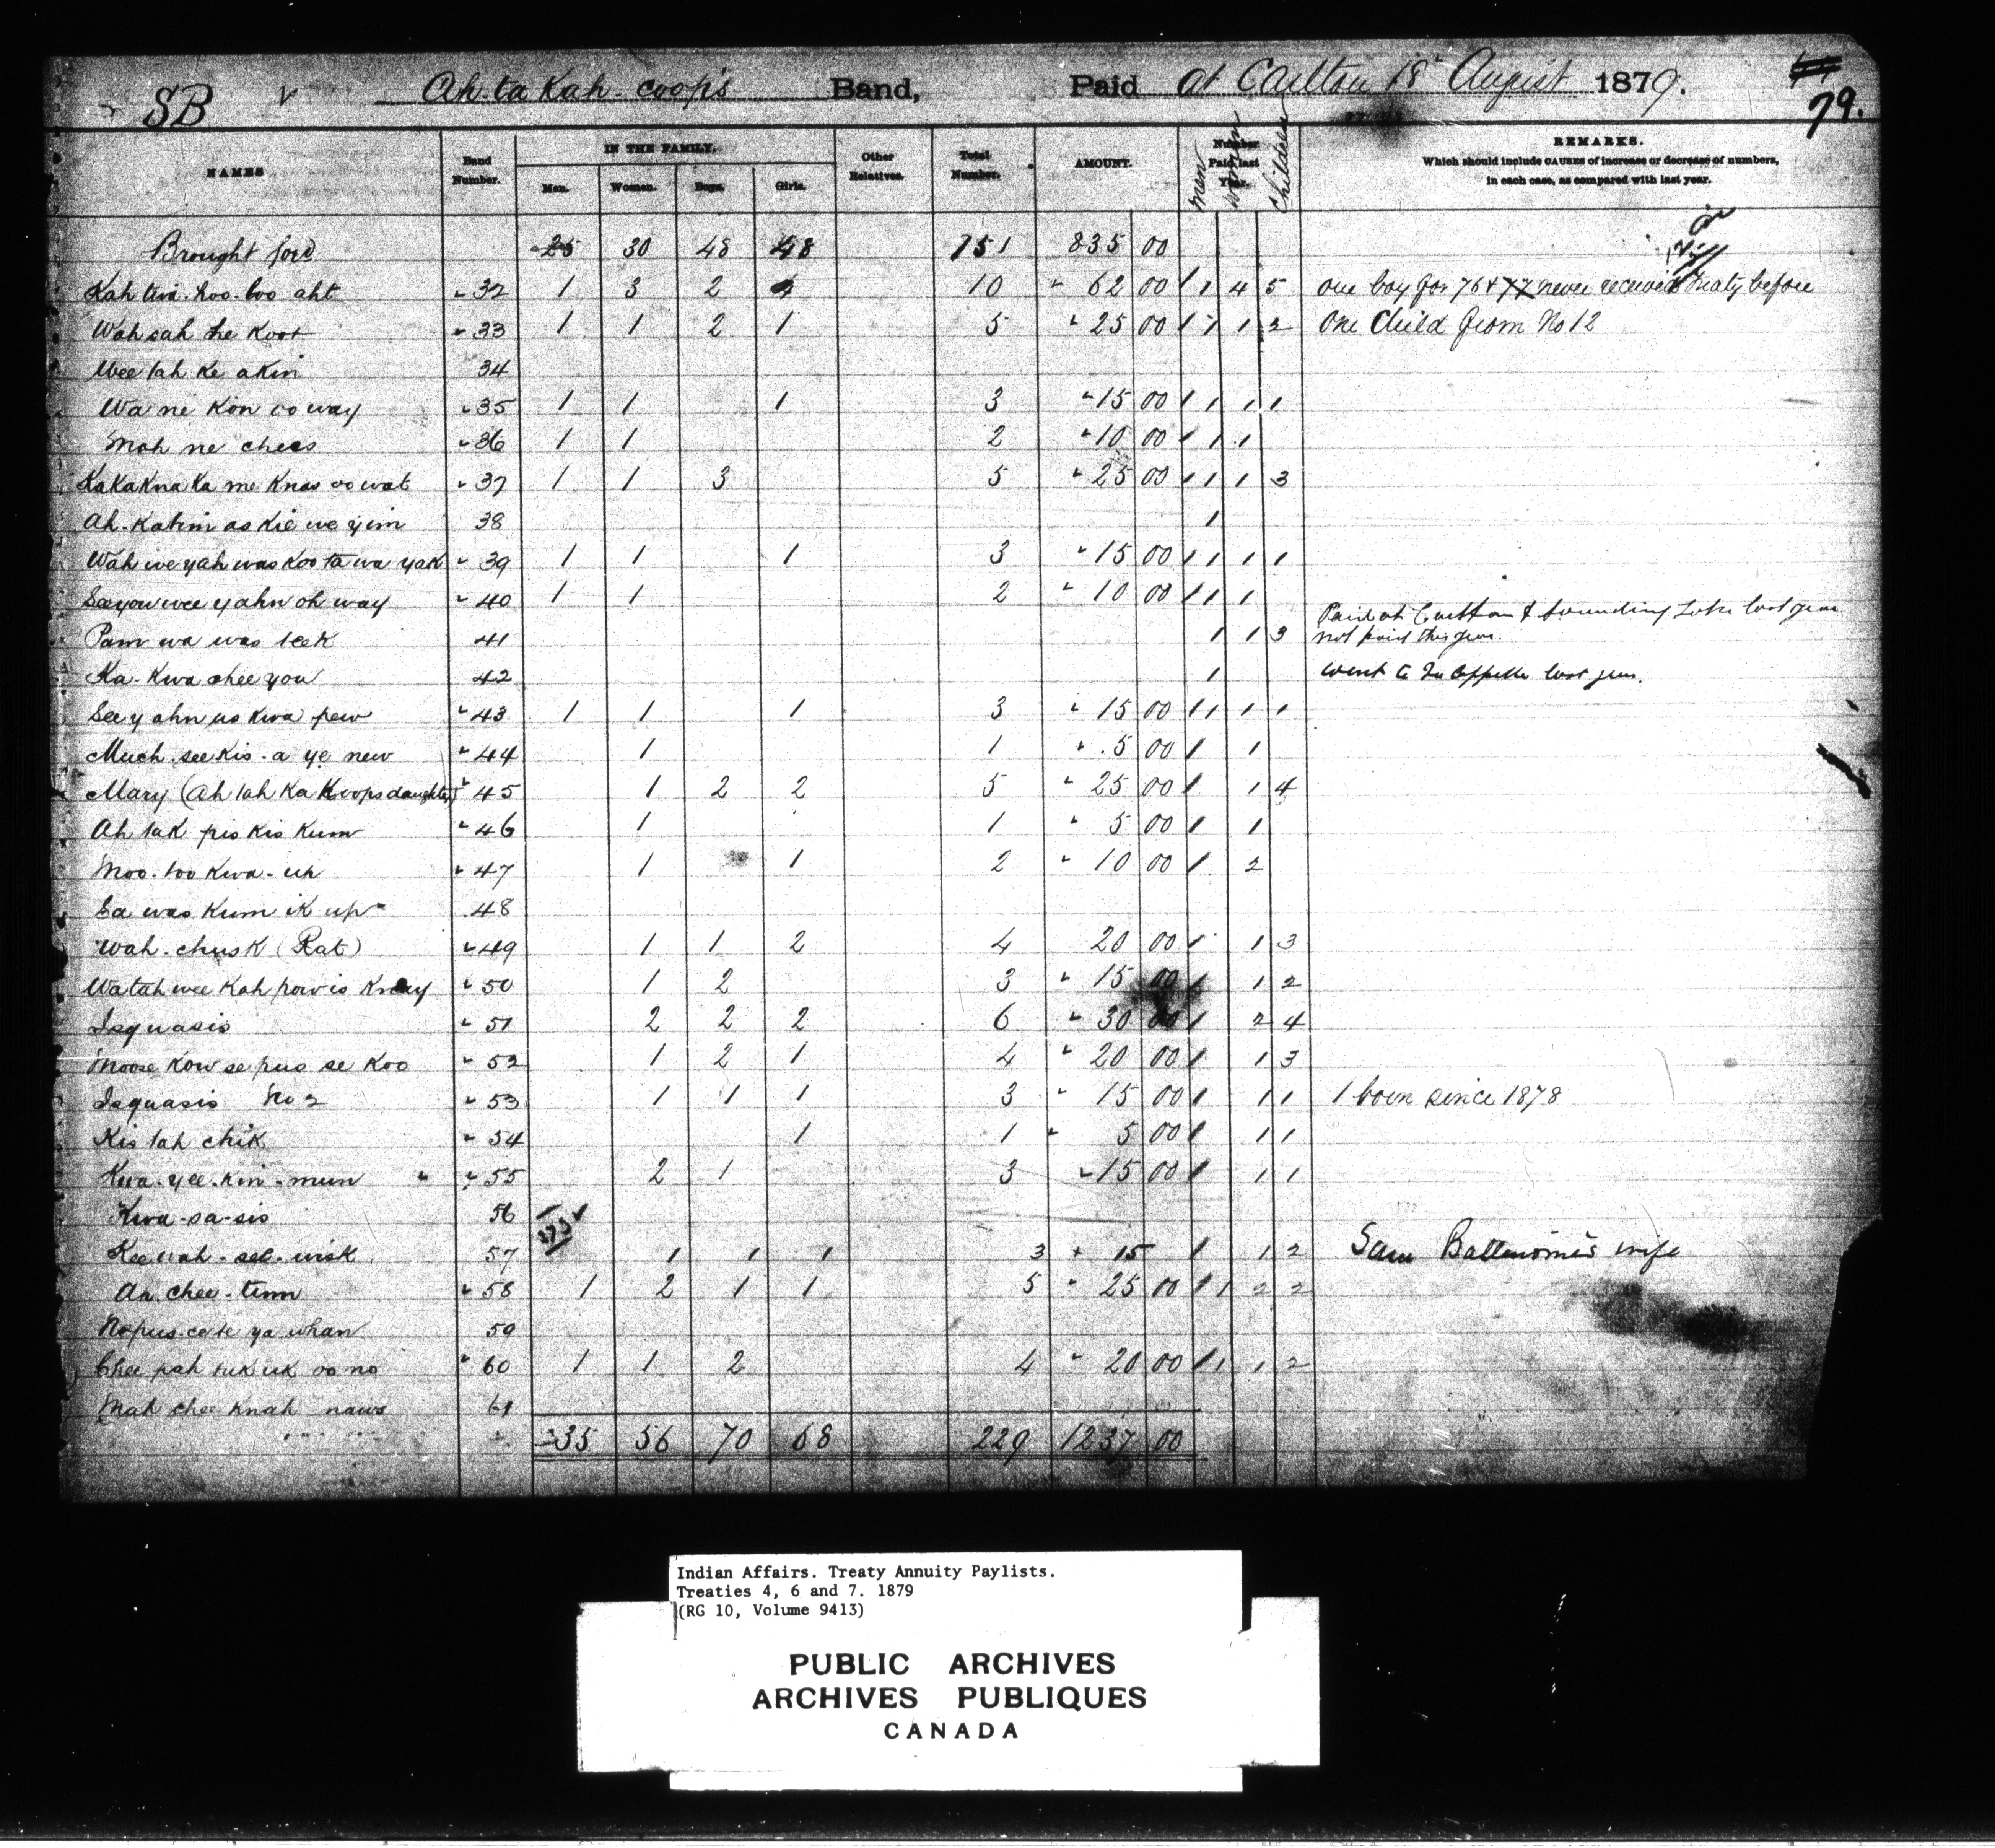 SB Ah-ta Kah-coop's Band, Paid at Carlton 18th August 1879. 79.
NAMES Band Number. IN THE FAMILY. Men. Women. Boys. Girls. Other Relatives. Total Number. AMOUNT. Number Paid last Year. Men Women Children REMARKS.
Which should include CAUSES of increase or decrease of numbers,
in each case, as compared with last year.
Brought ford 25 30 48 48 151 835 00
Kah twa-koo-too aht 32 1 3 2 4 10 62 00 1 1 4 5 one boy for 76 & 77 never received Treaty before
Wah sah he Koot 33 1 1 2 1 5 25 00 1 1 1 2 One Child from No 12
Wee tah Ke akin 34
Wa ne Kon oo way 35 1 1 1 3 15 00 1 1 1 1
Mah ne chees 36 1 1 2 10 00 1 1 1
KaKaKna Ka me Knas oo wat 37 1 1 3 5 25 00 1 1 1 3
Ah-Katim as Kie we yim 38 1
Wah we yah was Koo ta wa yak 39 1 1 1 3 15 00 1 1 1 1
See you wee yahn oh way 40 1 1 2 10 00 1 1 1
Pam wa was teek 41 1 1 3 Paid at Carlton & Sounding Lake last year
not paid this year.
Ka-Kwa chee you 42 1 Went to Qu'Appelle last year.
See y ahn us Kwa pew 43 1 1 1 3 15 00 1 1 1 1
Much-see Kis-a ye new 44 1 1 5 00 1 1
Mary (Ah tah Ka Koops daughter) 45 1 2 2 5 25 00 1 1 4
Ah tak pis Kis Kum 46 1 1 5 00 1 1
Moo-too Kwa-up 47 1 1 2 10 00 1 2
Sa was Kum ik up 48
Wah-chusk (Rat) 49 1 1 2 4 20 00 1 1 3
Watah wee Kah pow is Kway 50 1 2 3 15 00 1 1 2
Isquasis 51 2 2 2 6 30 00 1 2 4
Moose Kow se pus se Koo 52 1 2 1 4 20 00 1 1 3
Isquasis No 2 53 1 1 1 3 15 00 1 1 1 1 born since 1878
Kis tah chik 54 1 1 5 00 1 1 1
Kwa-yee-kin-mun 55 2 1 3 15 00 1 1 1
Kwa-sa-sis 56
Kee wah-see-wisk 57 1 1 1 3 15 1 1 2 Sam Ballendine's wife
An-chee-timm 58 1 2 1 1 5 25 00 1 1 2 2
Nepus-cate ya whan 59
Chee pah tuk uk oo no 60 1 1 2 4 20 00 1 1 1 2
Mah chee Knah naws 61
35 56 70 68 229 1237 00
Indian Affairs. Treaty Annuity Paylists.
Treaties 4, 6 and 7. 1879
(RG 10, Volume 9413)
PUBLIC ARCHIVES
ARCHIVES PUBLIQUES
CANADA